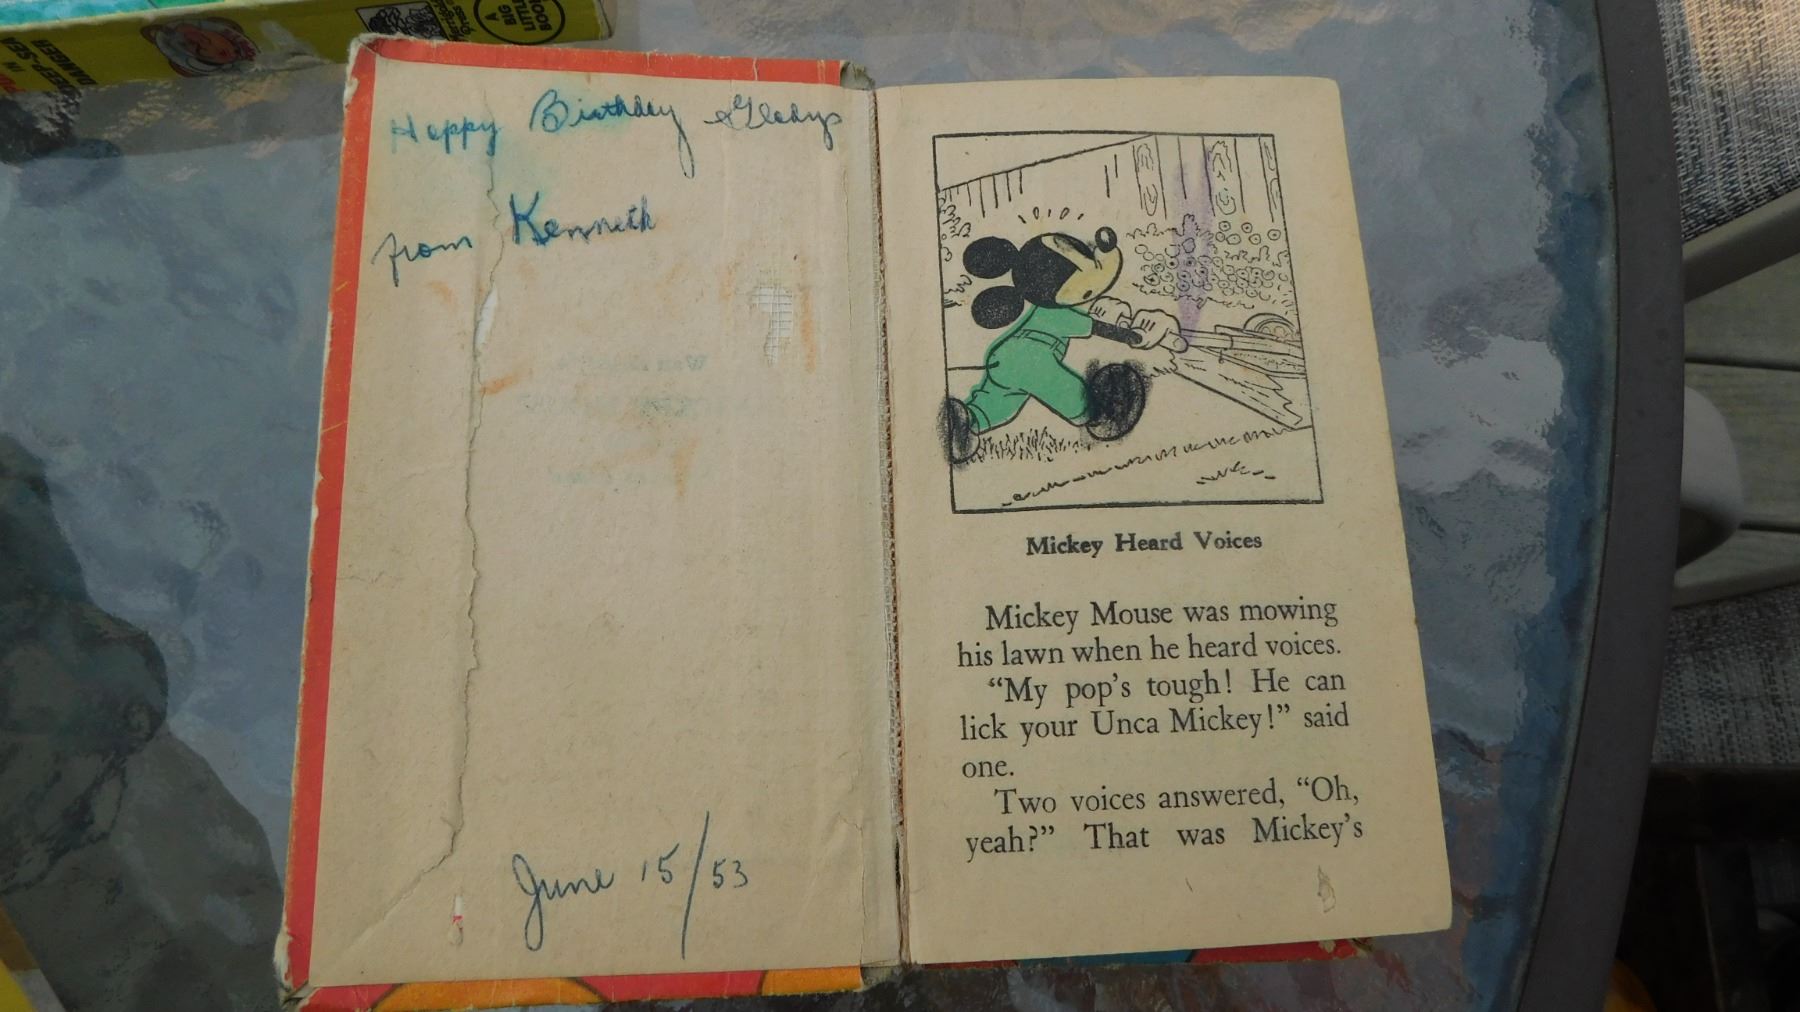 A
BIG
LITTLE
BOOK
DEEP-SEA
IN
DANGER
Happy Birthday Gladys
from Kenneth
June 15/53
Mickey Heard Voices
Mickey Mouse was mowing
his lawn when he heard voices.
“My pop’s tough! He can
lick your Unca Mickey!” said
one.
Two voices answered, “Oh,
yeah?” That was Mickey’s